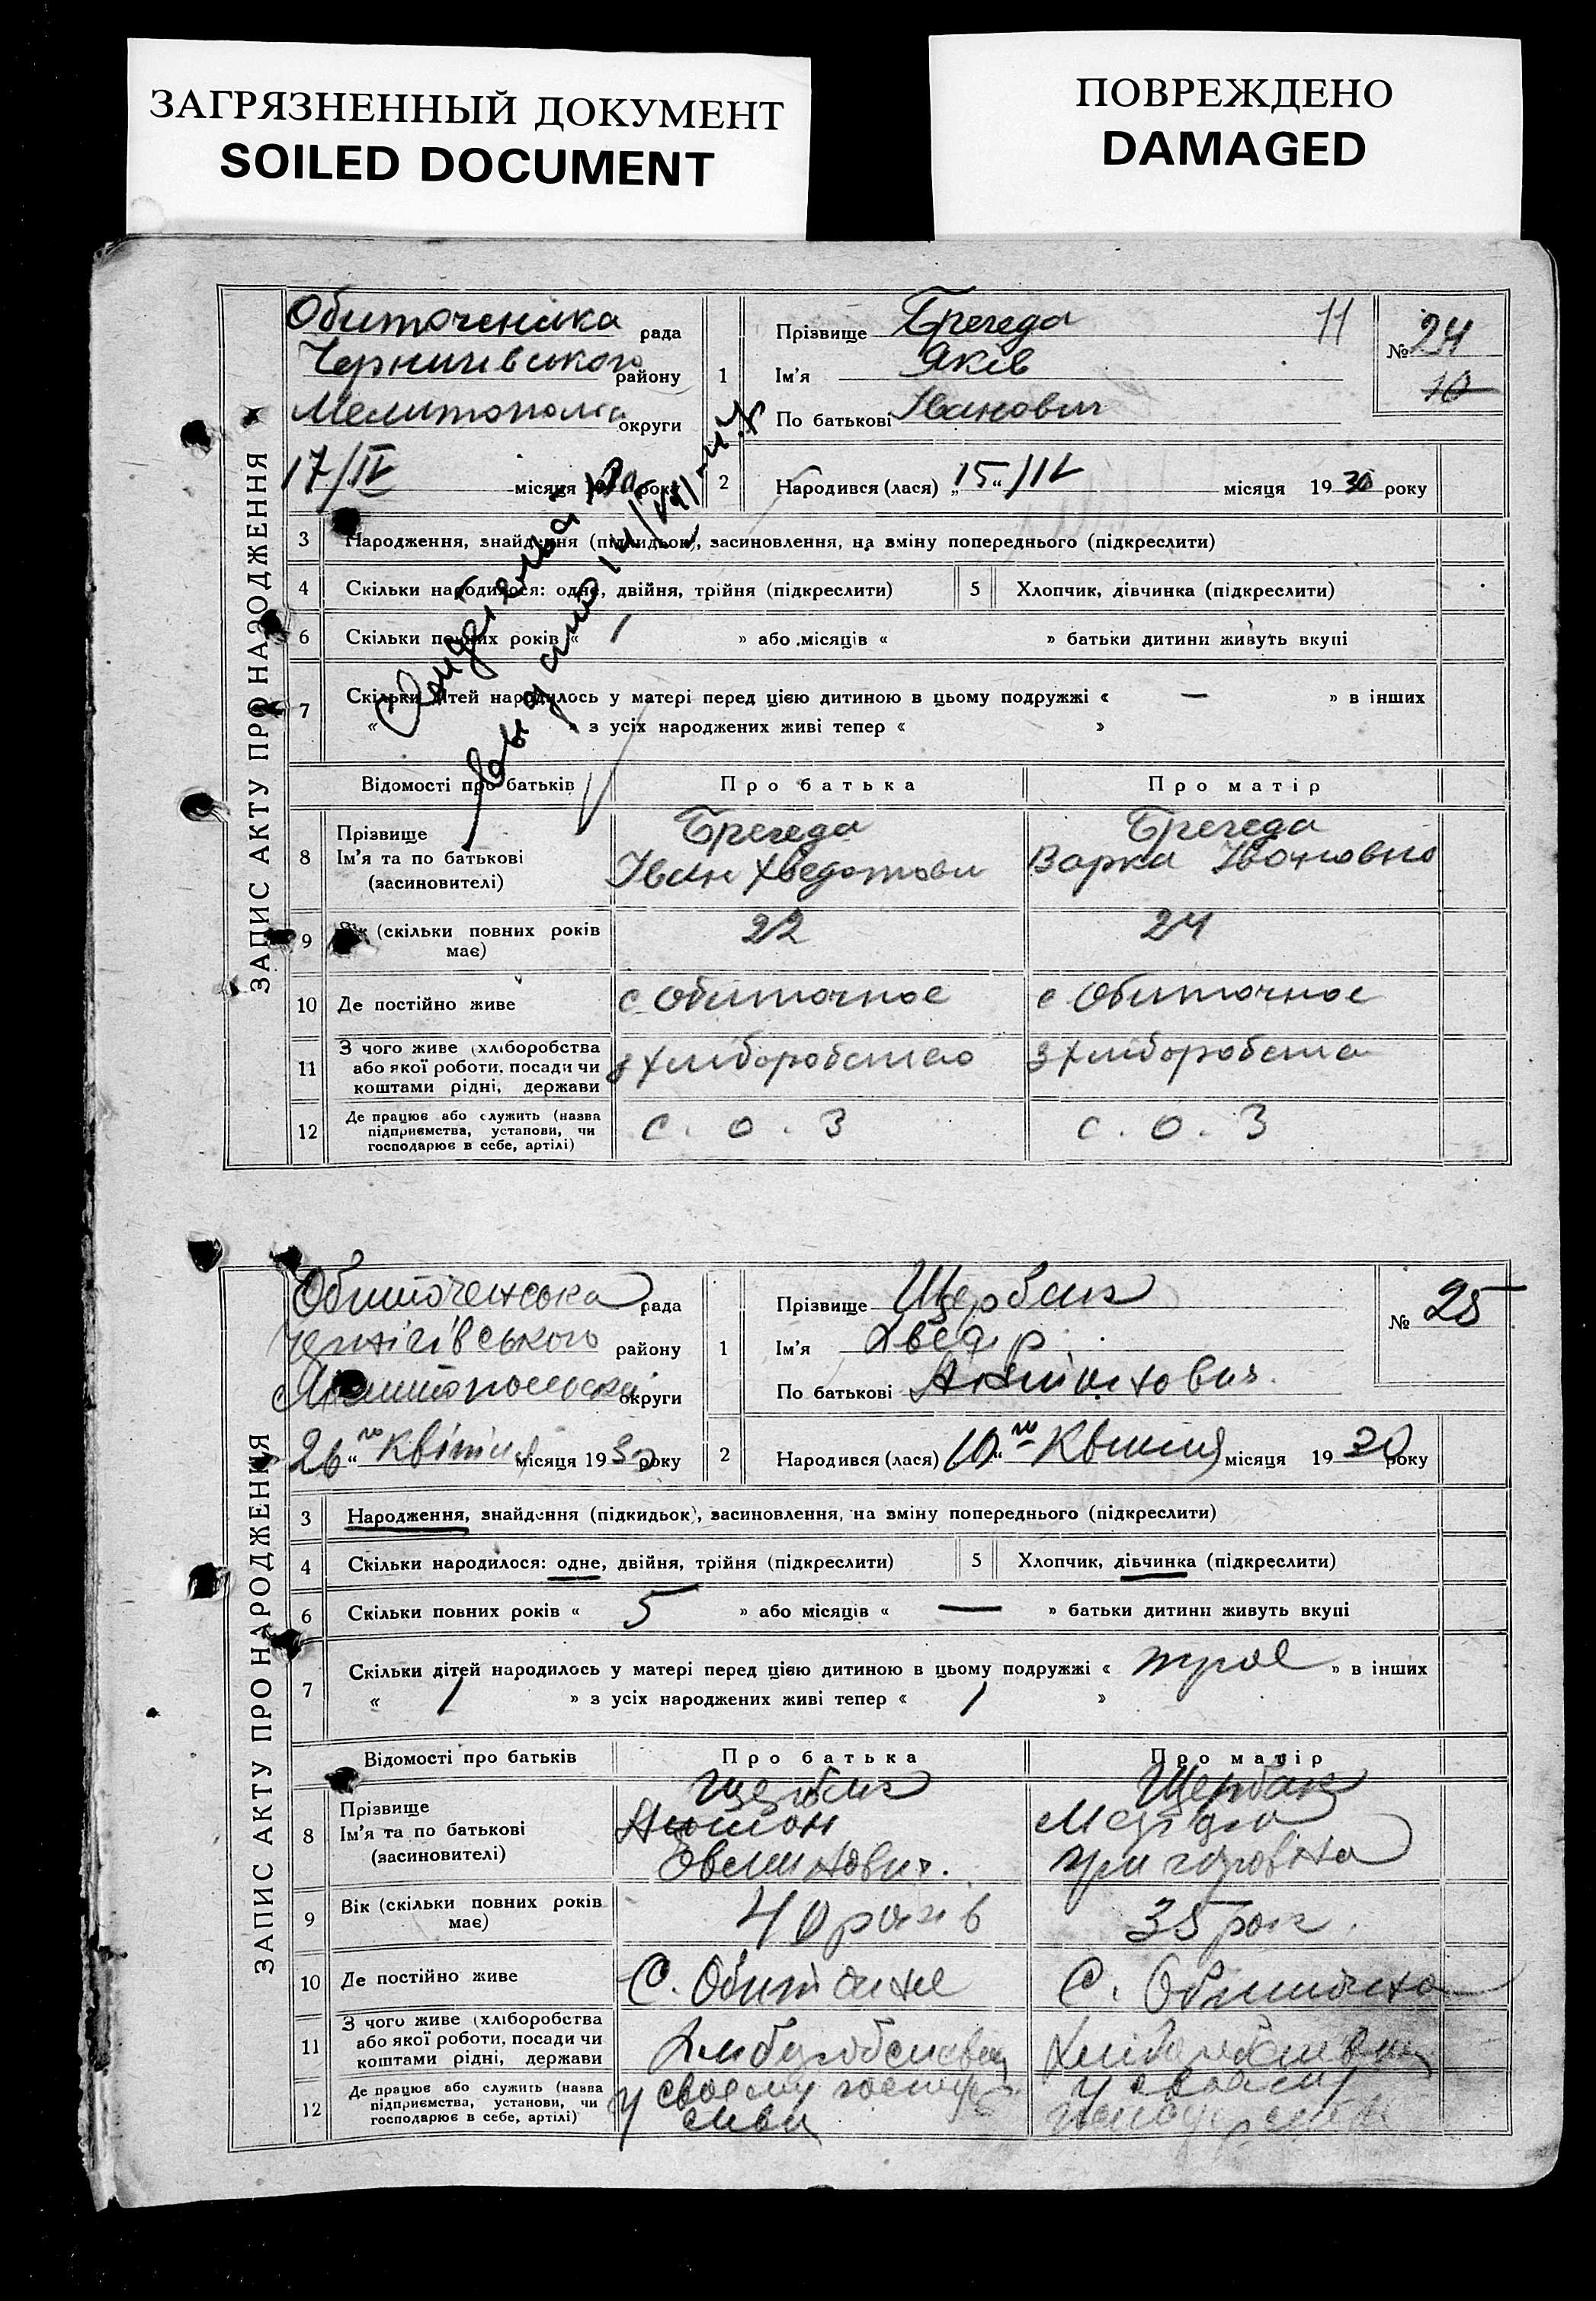 ЗАГРЯЗНЕННЫЙ ДОКУМЕНТ
SOILED DOCUMENT
ПОВРЕЖДЕНО
DAMAGED
ЗАПИС АКТУ ПРО НАРОДЖЕННЯ
Обиточенська рада
Чернигівського району
Мелитопольс округи
17/IV місяця 1930 року
1 Прізвище Брегеда 11
Ім'я Яків
По батькові Іванович
№ 24
10
2 Народився (лася) „15“/IV місяця 1930 року
3 Народження, знайдення (підкидьок), засиновлення, на зміну попереднього (підкреслити)
4 Скільки народилося: одне, двійня, трійня (підкреслити) 5 Хлопчик, дівчинка (підкреслити)
6 Скільки повних років « 1 » або місяців « » батьки дитини живуть вкупі
7 Скільки дітей народилось у матері перед цією дитиною в цьому подружжі « — » в інших
« » з усіх народжених живі тепер « »
Відомості про батьків Про батька Про матір
8 Прізвище
Ім'я та по батькові
(засиновителі)
Брегеда
Іван Хведотови
Брегеда
Варка Івановна
9 Вік (скільки повних років має) 22 24
10 Де постійно живе с Обиточное с Обиточное
11 З чого живе (хліборобства
або якої роботи, посади чи
коштами рідні, держави
з хліборобства з хліборобства
12 Де працює або служить (назва
підприємства, установи, чи
господарює в себе, артілі)
С. О. З С. О. З
ЗАПИС АКТУ ПРО НАРОДЖЕННЯ
Обиточенська рада
Чернігівського району
Мелитопольськ округи
26“го квітня місяця 1930 року
1 Прізвище Щербак
Ім'я Хведір
По батькові Антонович.
№ 25
2 Народився (лася) 10“го Квітня місяця 1930 року
3 Народження, знайдення (підкидьок), засиновлення, на зміну попереднього (підкреслити)
4 Скільки народилося: одне, двійня, трійня (підкреслити) 5 Хлопчик, дівчинка (підкреслити)
6 Скільки повних років « 5 » або місяців « — » батьки дитини живуть вкупі
7 Скільки дітей народилось у матері перед цією дитиною в цьому подружжі « трое » в інших
« 1 » з усіх народжених живі тепер « 1 »
Відомості про батьків Про батька Про матір
8 Прізвище
Ім'я та по батькові
(засиновителі)
Щербак
Антон
Щербак
Григоровна
9 Вік (скільки повних років має) 40 років 35 рок.
10 Де постійно живе С. Обиточне С. Обиточна
11 З чого живе (хліборобства
або якої роботи, посади чи
коштами рідні, держави
Хліборобством Хліборобством
12 Де працює або служить (назва
підприємства, установи, чи
господарює в себе, артілі)
У своему
У своему